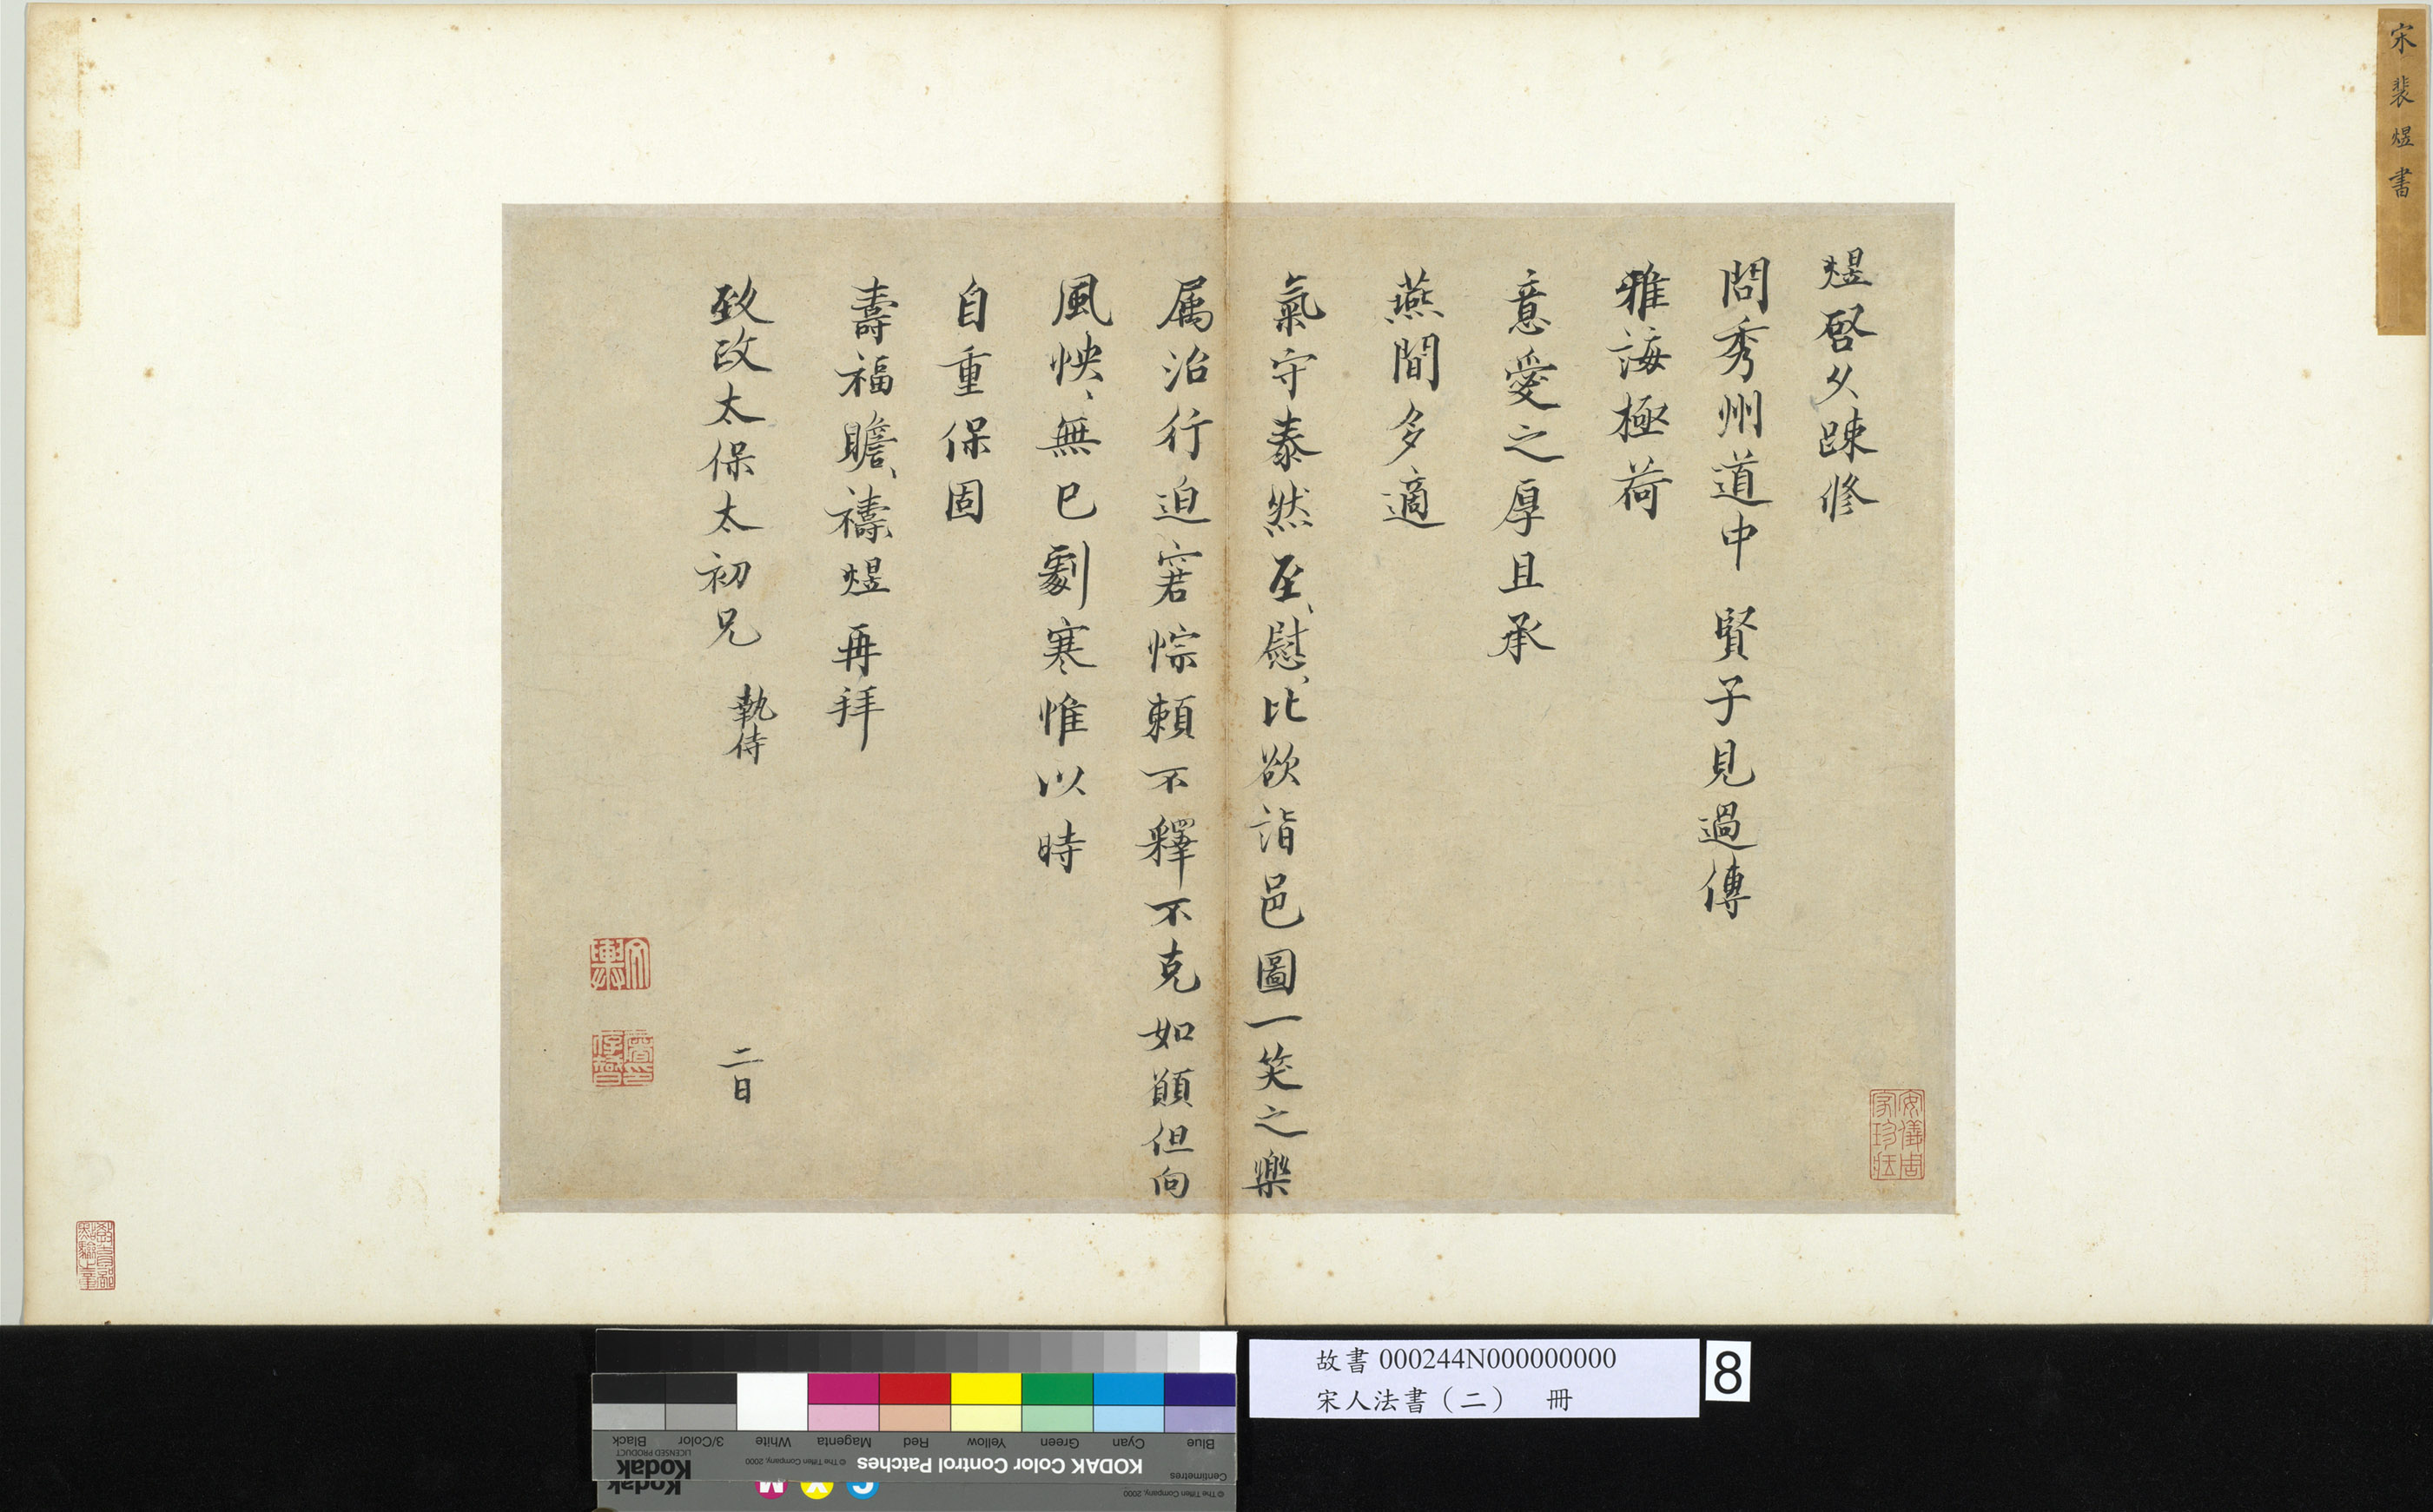 宋裴煜書
煜啓久踈修
問秀州道中 賢子見過傳
雅誨極荷
意愛之厚且承
燕閒多適
氣守泰然至、慰、比欲詣邑圖一笑之樂
属治行迫窘悰頼不釋不克如願但向
風怏、無已劇寒惟以時
自重保固
壽福瞻、禱、煜再拜
致政太保太初兄 執侍
二日
安儀周家珍藏
故書 000244N000000000
宋人法書（二） 冊
8
Blue Cyan Green Yellow Red Magenta White 3/Color Black
KODAK Color Control Patches
© The Tiffen Company, 2000
Kodak
LICENSED PRODUCT
Centimetres
© The Tiffen Company, 2000
Kodak
C Y M